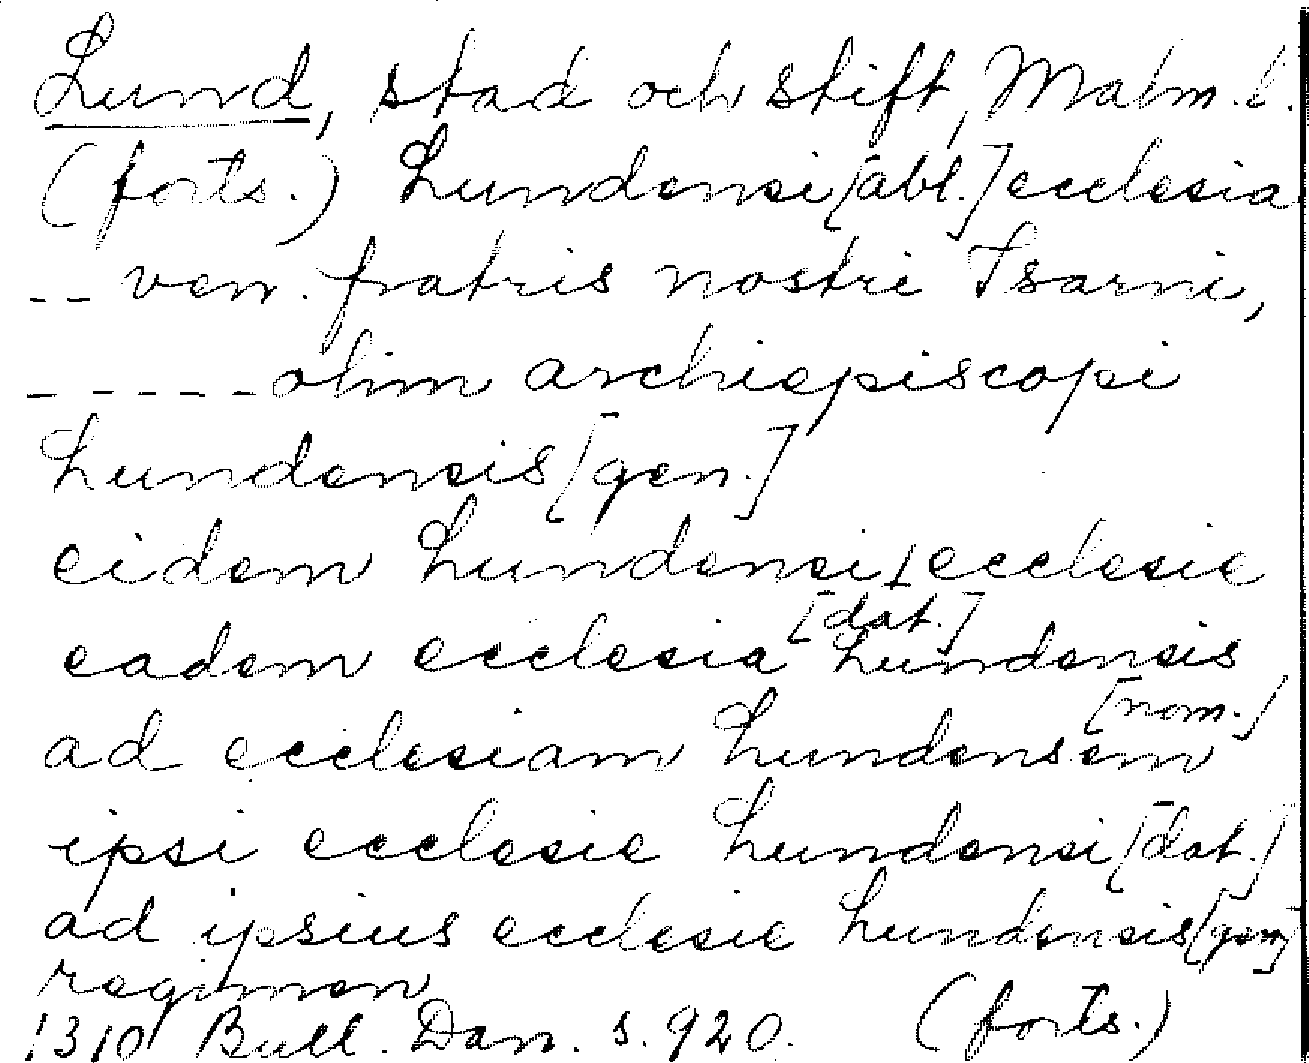 Lund, stad och stift, Malm. l.
(forts.) Lundensi [abl.] ecclesia
-- ven. fratris nostri Isarni,
----- olim archiepiscopi
Lundensis [gen.]
eidem Lundensi ecclesie
[dat.]
eadem ecclesia Lundensis
[nom.]
ad ecclesiam Lundensem
ipsi ecclesie Lundensi [dat.]
ad ipsius ecclesie Lundensis [gen.]
regimen
1310 Bull. Dan. s. 920. (forts.)